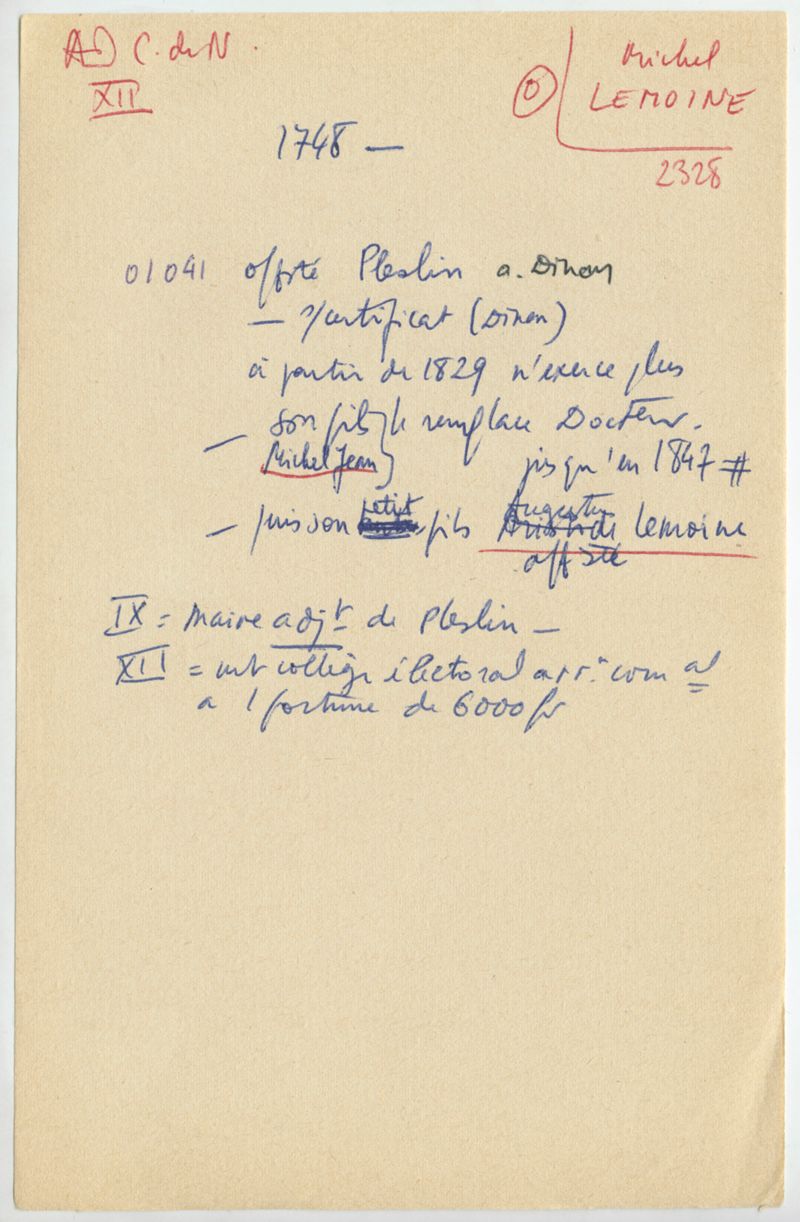 AD C. du N.
XII
Michel
O LEMOINE
2328
1748 —
01041 offté Pleslin a. Dinan
— s/certificat (Dinan)
à partir de 1829 n'exerce plus
— son fils } le remplace Docteur.
Michel Jean jusqu'en 1847 #
petit Augustin
— puis son fils Aristide Lemoine
off sté
IX = Maire adjt de Pleslin —
XII = mb collège électoral arrt com al
a 1 fortune de 6000 fr